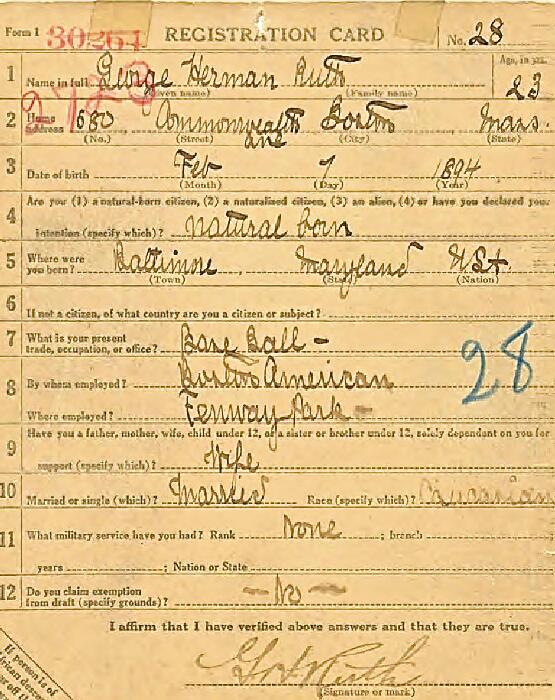 Form 1 30264 REGISTRATION CARD No. 28
1 Name in full George Herman Ruth Age, in yrs. 23
(Given name) (Family name)
2723
2 Home address 680 Commonwealth Ave Boston Mass.
(No.) (Street) (City) (State)
3 Date of birth Feb 7 1894
(Month) (Day) (Year)
4 Are you (1) a natural-born citizen, (2) a naturalized citizen, (3) an alien, (4) or have you declared your
intention (specify which)? natural born
5 Where were you born? Baltimore Maryland USA.
(Town) (State) (Nation)
6 If not a citizen, of what country are you a citizen or subject?
7 What is your present trade, occupation, or office? Base Ball -
28
8 By whom employed? Boston American
Where employed? Fenway Park -
9 Have you a father, mother, wife, child under 12, or a sister or brother under 12, solely dependent on you for
support (specify which)? Wife
10 Married or single (which)? Married Race (specify which)? Caucasian
11 What military service have you had? Rank None ; branch
years ; Nation or State
12 Do you claim exemption from draft (specify grounds)? - No -
I affirm that I have verified above answers and that they are true.
G H Ruth
(Signature or mark)
If person is of